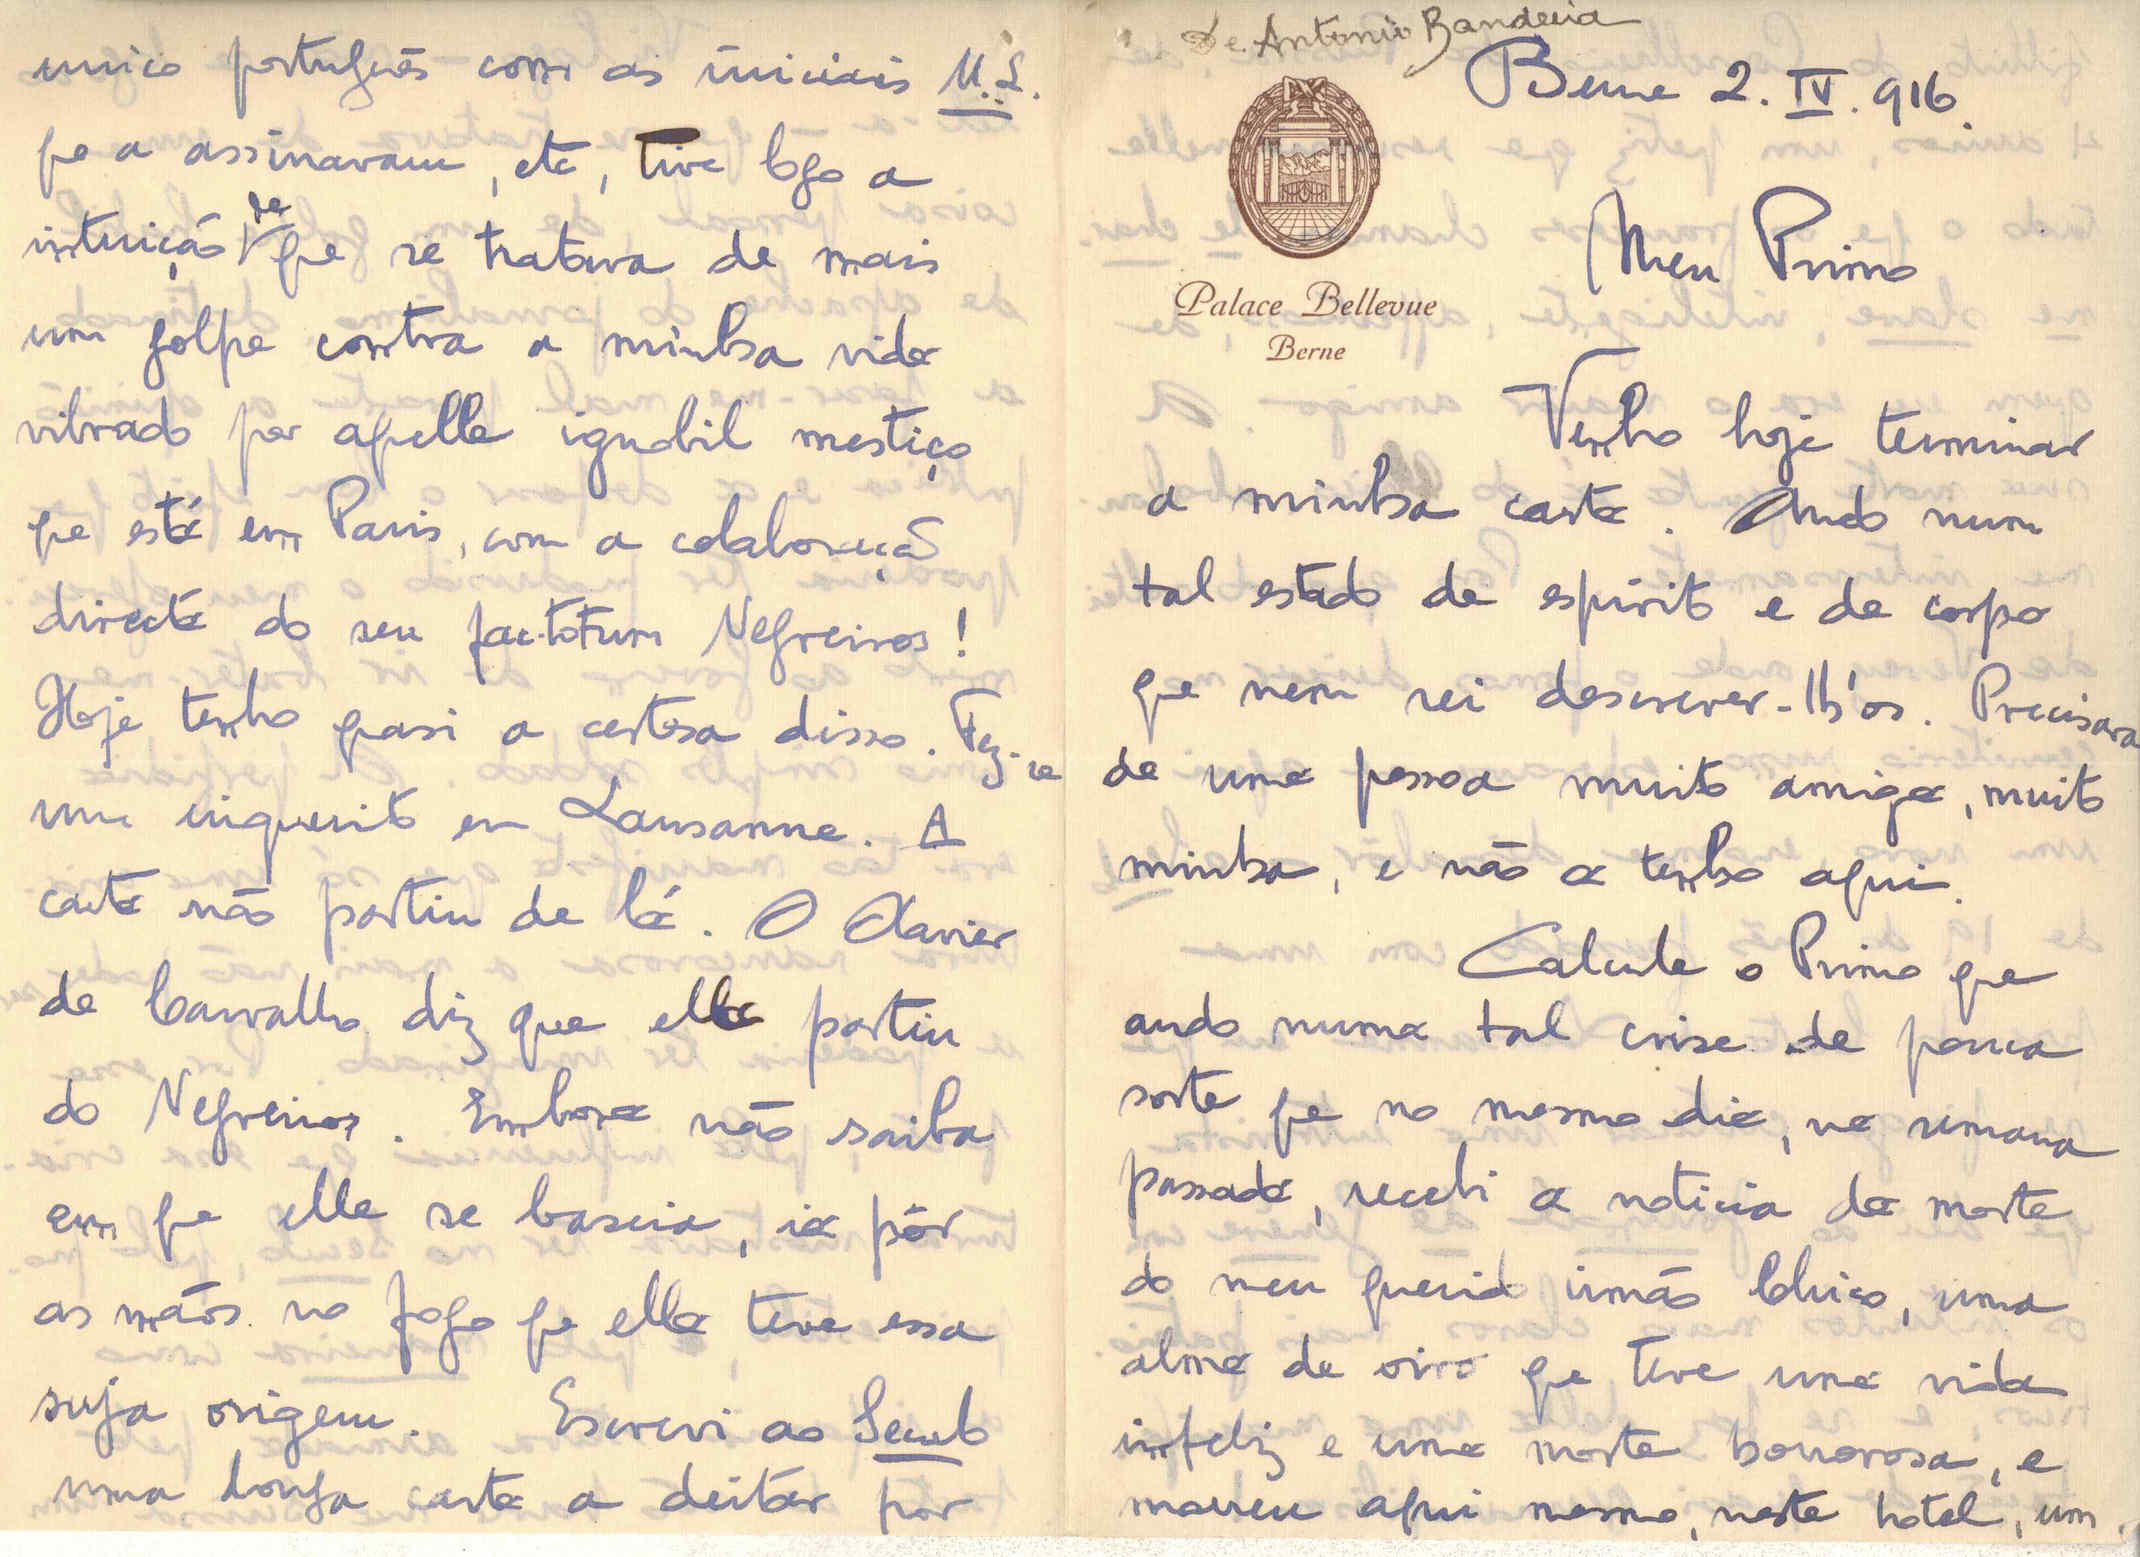 De Antonio Bandeira
Berne 2. IV. 916.
Palace Bellevue
Berne
Meu Primo
Venho hoje terminar
a minha carta. Ando num
tal estado de espirito e de corpo
que nem sei descrever-lh'os. Precisava
de uma pessoa muito amiga, muito
minha, e não a tenho aqui.
Calcule o Primo que
ando numa tal crise de pouca
sorte que no mesmo dia, na semana
passada, recebi a noticia da morte
do meu querido irmão Chico, uma
alma de oiro que teve uma vida
infeliz e uma morte horrorosa, e
morreu aqui mesmo, neste hotel, um
unico português com as iniciais M.L.
que a assinavam, etc, tive logo a
intuição de que se tratava de mais
um golpe contra a minha vida
vibrado por aquelle ignobil mestiço
que está em Paris, com a colaboração
directa do seu factotum Negreiros!
Hoje tenho quasi a certesa disso. Fez-se
um inquerito em Lausanne. A
carta não partiu de lá. O Xavier
de Carvalho diz que ella partiu
do Negreiros. Embora não saiba
em que elle se baseia, ia pôr
as mãos no fogo que ella teve essa
suja origem. Escrevi ao Seculo
uma longa carta a deitar por